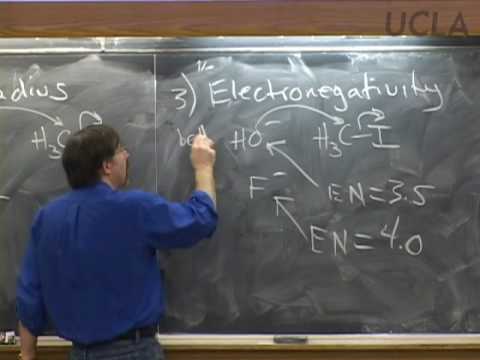 UCLA
adius
H₃C
3) Electronegativity
HO⁻ H₃C–I
F⁻ EN=3.5
EN=4.0